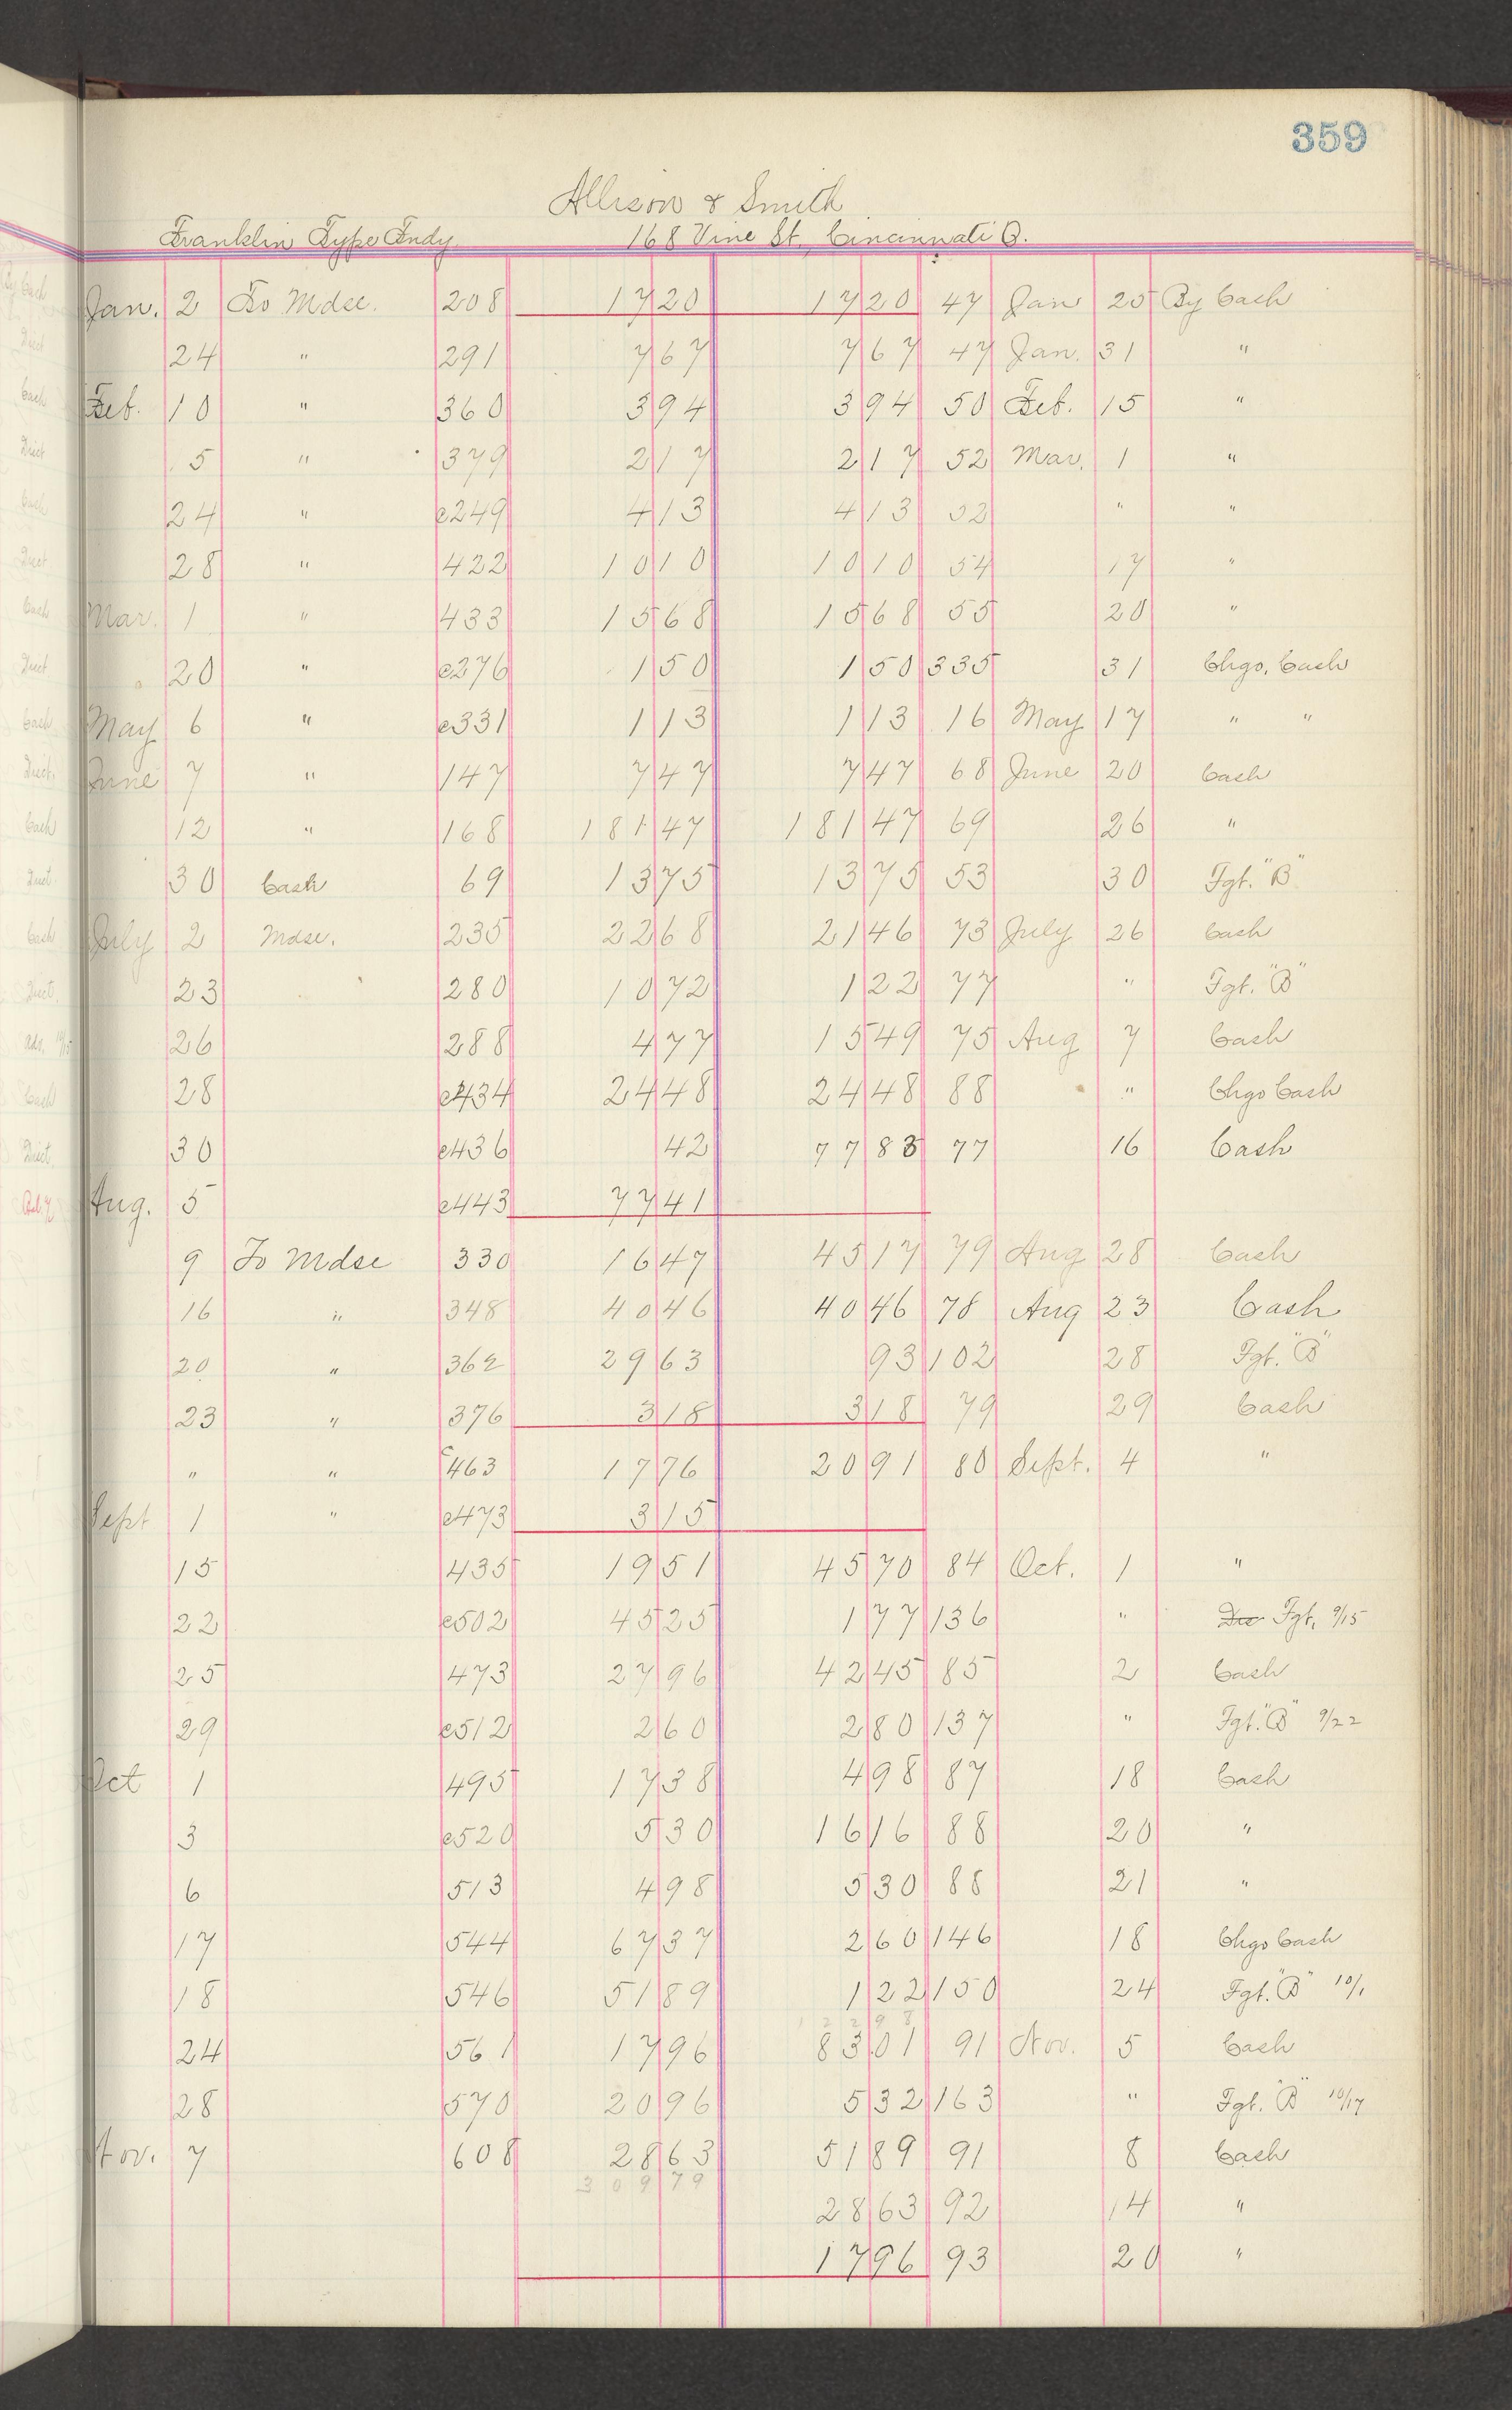 359
Allison & Smith
Franklin Type Fndy 168 Vine St. Cincinnati O.
Jan. 2 To Mdse. 208 17 20 17 20 47 Jan 25 By Cash
24 " 291 7 67 7 67 47 Jan. 31 "
Feb. 10 " 360 3 94 3 94 50 Feb. 15 "
5 " 379 2 17 2 17 52 Mar. 1 "
24 " c249 4 13 4 13 52 " "
28 " 422 10 10 10 10 54 17 "
Mar. 1 " 433 15 68 15 68 55 20 "
20 " c276 1 50 1 50 335 31 Chgo. Cash
May 6 " c331 1 13 1 13 16 May 17 " "
June 7 " 147 7 47 7 47 68 June 20 Cash
12 " 168 181 47 181 47 69 26 "
30 Cash 69 13 75 13 75 53 30 Fgt. "B"
July 2 Mdse. 235 22 68 21 46 73 July 26 Cash
23 280 10 72 1 22 77 " Fgt. "B"
26 288 4 77 15 49 75 Aug 7 Cash
28 c434 24 48 24 48 88 " Chgo Cash
30 c436 42 77 83 77 16 Cash
Aug. 5 c443 77 41
9 To Mdse 330 16 47 45 17 79 Aug 28 Cash
16 " 348 40 46 40 46 78 Aug 23 Cash
20 " 362 29 63 93 102 28 Fgt. "B"
23 " 376 3 18 3 18 79 29 Cash
" " c463 17 76 20 91 80 Sept. 4 "
Sept 1 " c473 3 15
15 435 19 51 45 70 84 Oct. 1 "
22 c502 45 25 1 77 136 " Fgt. 9/15
25 473 27 96 42 45 85 2 Cash
29 c512 2 60 2 80 137 " Fgt. "B" 9/22
Oct 1 495 17 38 4 98 87 18 Cash
3 c520 5 30 16 16 88 20 "
6 513 4 98 5 30 88 21 "
17 544 67 37 2 60 146 18 Chgo Cash
18 546 51 89 1 22 150 24 Fgt. "B" 10/1
24 561 17 96 83 01 91 Nov. 5 Cash
28 570 20 96 5 32 163 " Fgt. "B" 10/17
Nov. 7 608 28 63 51 89 91 8 Cash
309 79
28 63 92 14 "
17 96 93 20 "